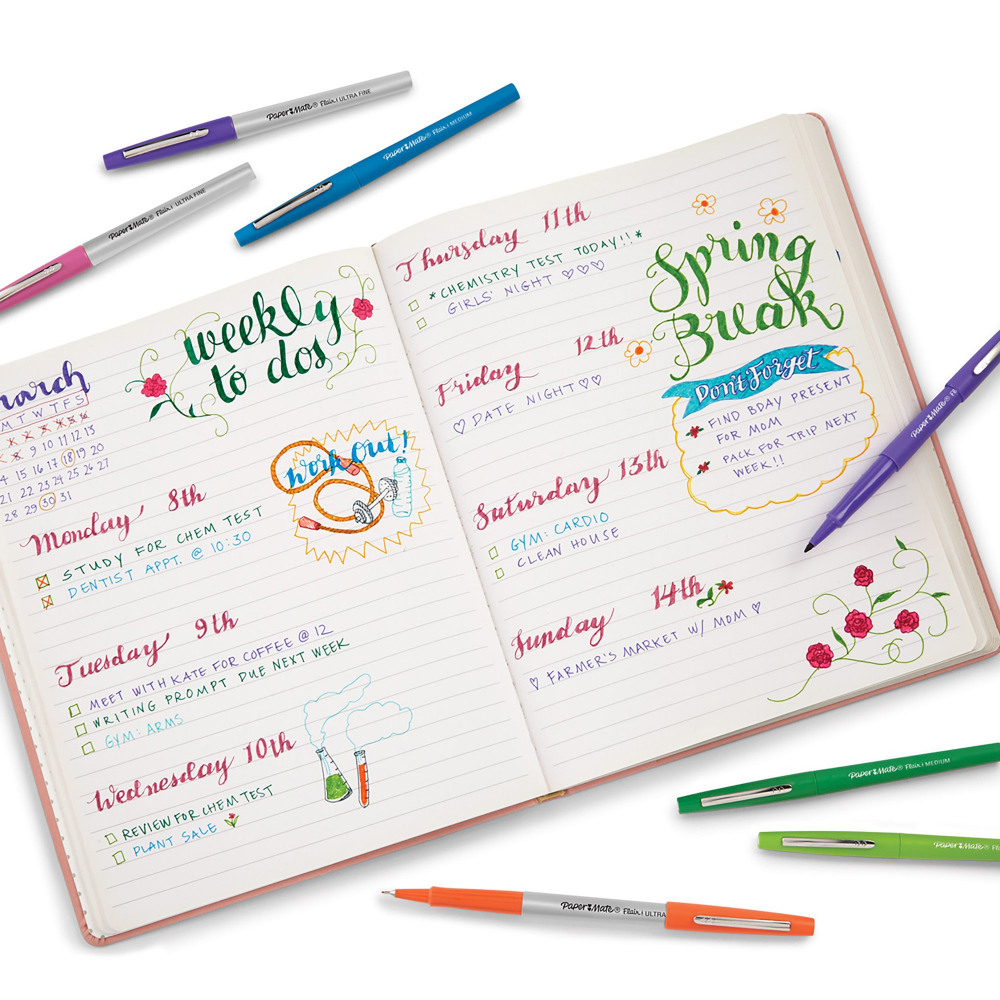 Paper Mate® Flair | ULTRA FINE
Paper Mate® Flair | MEDIUM
Paper Mate® Flair | ULTRA FINE
march
M T W T F S
8 9 10 11 12 13
4 15 16 17 18 19 20
21 22 23 24 25 26 27
28 29 30 31
weekly
to dos
Work Out!
Monday 8th
STUDY FOR CHEM TEST
DENTIST APPT. @ 10:30
Tuesday 9th
MEET WITH KATE FOR COFFEE @ 12
WRITING PROMPT DUE NEXT WEEK
GYM: ARMS
Wednesday 10th
REVIEW FOR CHEM TEST
PLANT SALE
Thursday 11th
*CHEMISTRY TEST TODAY!!*
GIRLS' NIGHT ♡♡♡
Friday 12th
♡ DATE NIGHT ♡♡
Saturday 13th
GYM: CARDIO
CLEAN HOUSE
Sunday 14th
♡ FARMER'S MARKET W/ MOM ♡
Spring
Break
Don't Forget
FIND BDAY PRESENT
FOR MOM
PACK FOR TRIP NEXT
WEEK!!
Paper Mate® Fl
Paper Mate® Flair | MEDIUM
Paper Mate® Fl
Paper Mate® Flair | ULTRA